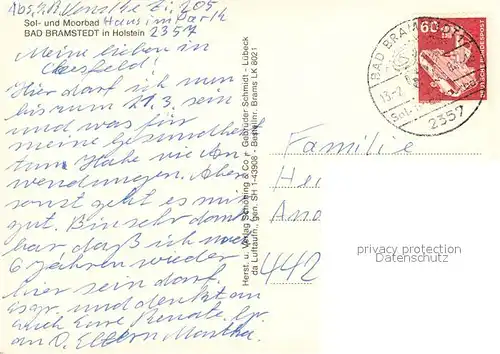 Sol- und Moorbad Haus im Park
BAD BRAMSTEDT in Holstein 2357
Meine lieben in
Coesfeld!
Hier darf ich nun
bis zum 21.3. sein
und was für
meine Gesundheit
tun. Habe vie An-
wendungen. Aber
sonst geht es mir
gut. Bin sehr dank
bar daß ich nach
6 Jahren wieder
hier sein darf.
und denkt an
Eure Renate.
an d. Eltern Martha.
Herst. u. Verlag Schöning & Co + Gebrüder Schmidt - Lübeck
da Luftaufn., gen. SH 1-43908 - Bestellnr. Brams LK 8021
BAD BRAMSTEDT
13.-2.
2357
60
DEUTSCHE BUNDESPOST
Familie
Hei
And
442
privacy protection
Datenschutz